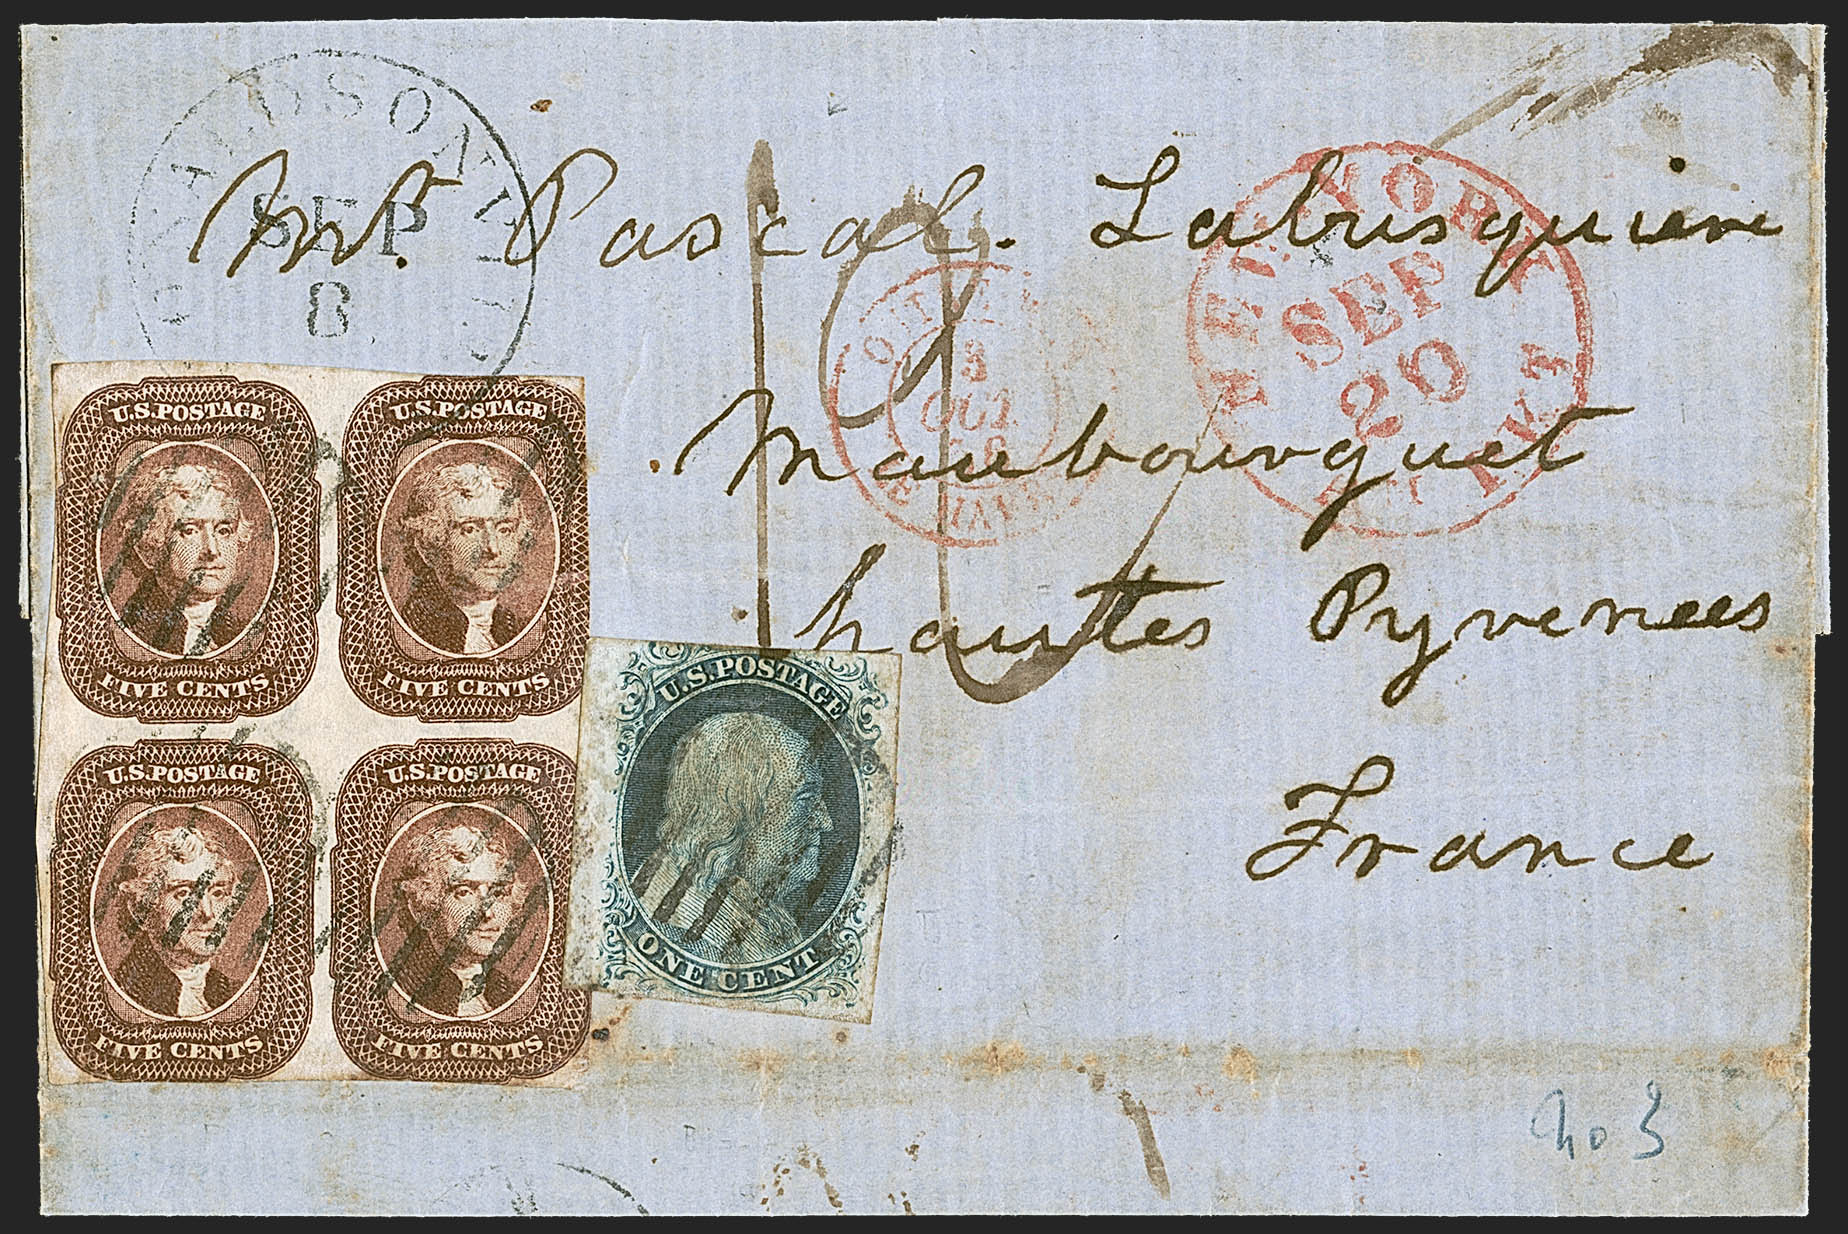 DONALDSONVILLE
SEP
8
Mr. Pascal Labusquiere
NEW YORK AM. PKT
SEP
20
3
OCT
Maubourguet
hautes Pyrenees
France
U.S.POSTAGE
FIVE CENTS
U.S.POSTAGE
FIVE CENTS
U.S.POSTAGE
FIVE CENTS
U.S.POSTAGE
FIVE CENTS
U.S.POSTAGE
ONE CENT
no 3